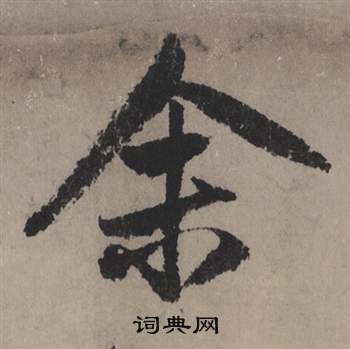 余
词典网